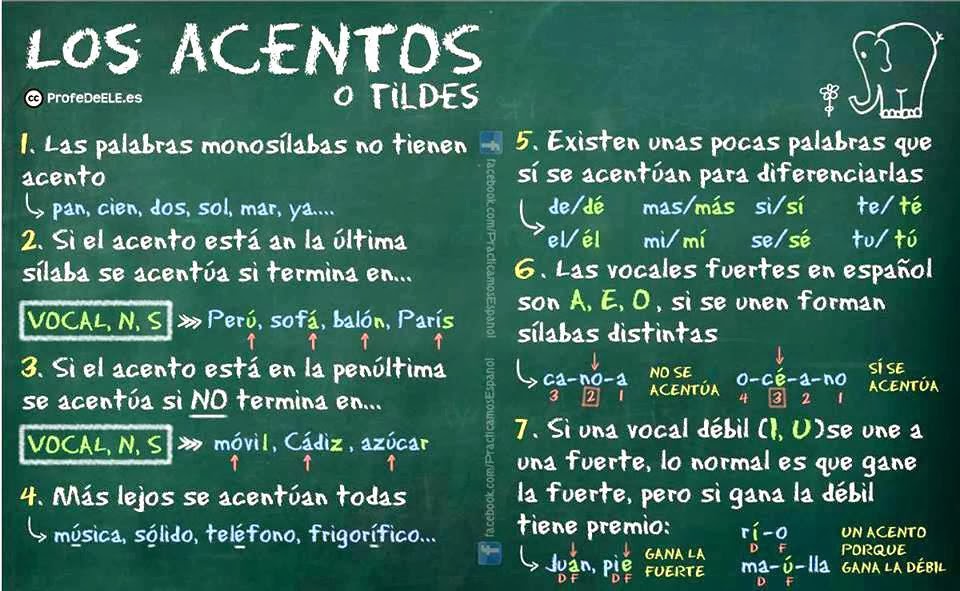 LOS ACENTOS
O TILDES
cc ProfeDeELE.es
1. Las palabras monosílabas no tienen
acento
pan, cien, dos, sol, mar, ya....
2. Si el acento está an la última
sílaba se acentúa si termina en...
VOCAL, N, S >>> Perú, sofá, balón, París
3. Si el acento está en la penúltima
se acentúa si NO termina en...
VOCAL, N, S >>> móvil, Cádiz, azúcar
4. Más lejos se acentúan todas
música, sólido, teléfono, frigorífico...
facebook.com/PracticamosEspanol
facebook.com/PracticamosEspanol
5. Existen unas pocas palabras que
sí se acentúan para diferenciarlas
de/dé mas/más si/sí te/té
el/él mi/mí se/sé tu/tú
6. Las vocales fuertes en español
son A, E, O, si se unen forman
sílabas distintas
ca-no-a NO SE ACENTÚA o-cé-a-no SÍ SE ACENTÚA
3 2 1 4 3 2 1
7. Si una vocal débil (I, U)se une a
una fuerte, lo normal es que gane
la fuerte, pero si gana la débil
tiene premio:
Juan, pie GANA LA FUERTE
D F D F
rí-o
D F
ma-ú-lla
D F
UN ACENTO
PORQUE
GANA LA DÉBIL